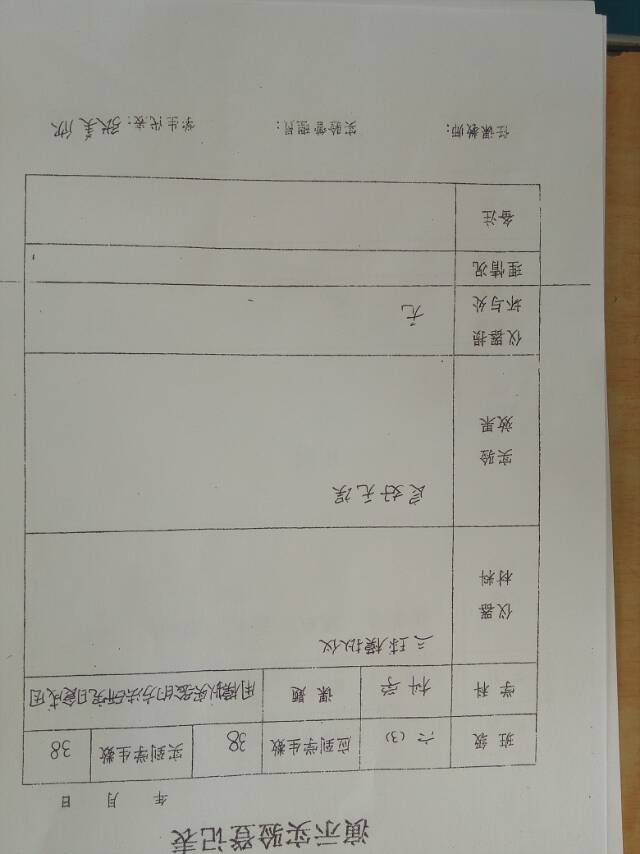 演示实验登记表
年 月 日
班级 六(3) 应到学生数 38 实到学生数 38
学科 科学 课题 用模拟实验的方法研究日食成因
仪器 三球模拟仪
材料
实验 良好无误
效果
仪器损 无
坏与处
理情况
备注
任课教师: 实验管理员: 学生代表:张美欣